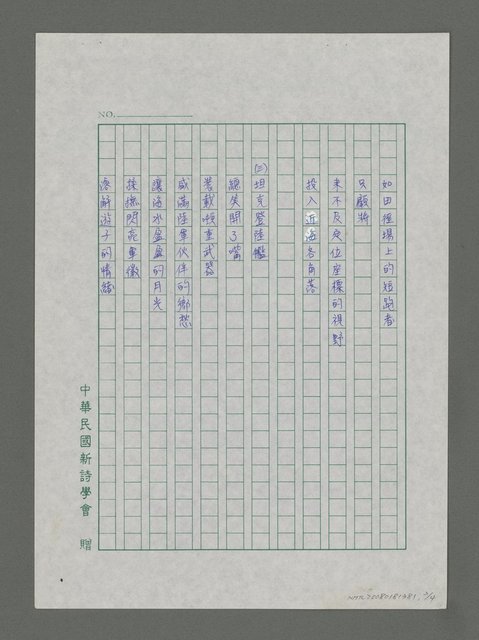 NO.
如田徑場上的短跑者
只顧將
來不及定位座標的視野
投入近海各角落
(三)坦克登陸艦
總笑開了嘴
裝載噸重武器
盛滿陸軍伙伴的鄉愁
讓海水盈盈的月光
擁撫閃亮軍徽
溶解遊子的情緒
中華民國新詩學會 贈